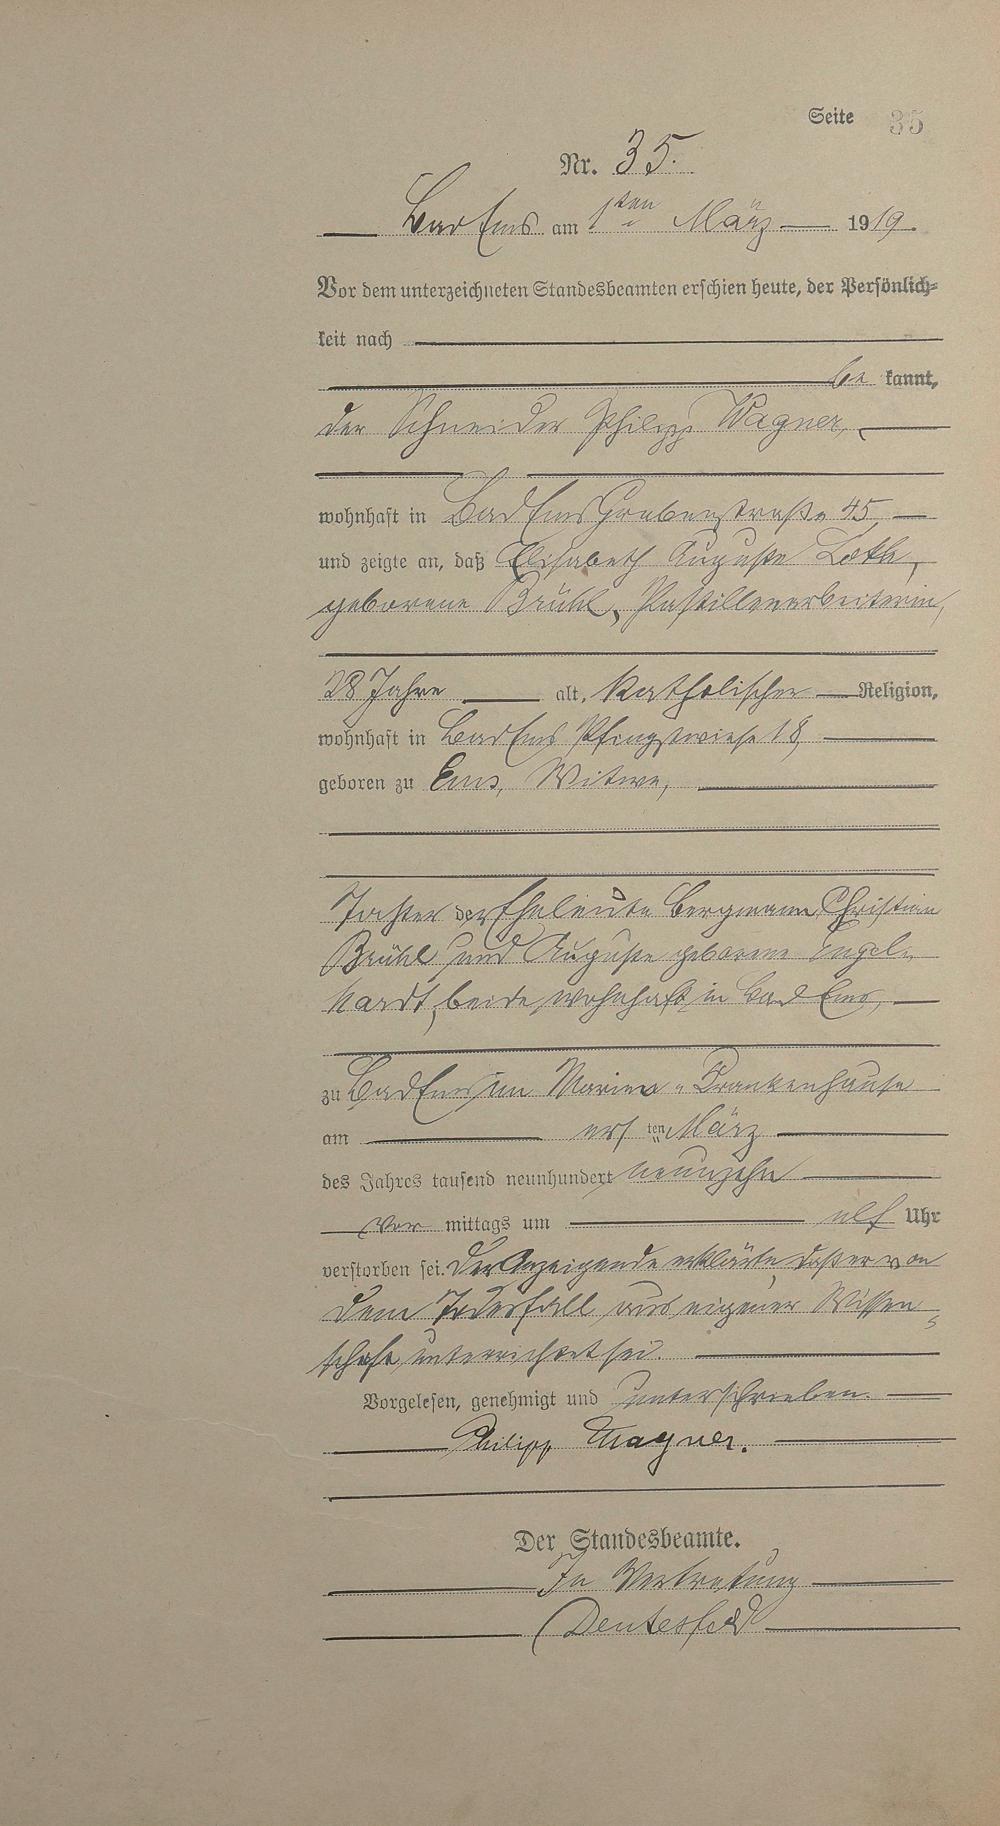 Seite 35
Nr. 35.
Bad Ems am 1ten März 1919.
Vor dem unterzeichneten Standesbeamten erschien heute, der Persönlich-
keit nach
be kannt,
der Schneider Philipp Wagner,
wohnhaft in Bad Ems Grabenstraße 45,
und zeigte an, daß Elisabeth Auguste Loth,
geborene Brühl, Pastillenarbeiterin,
28 Jahre alt, katholischer Religion,
wohnhaft in Bad Ems Pfingstwiese 18,
geboren zu Ems, Witwe,
Tochter der Eheleute Bergmann Christian
Brühl und Auguste geborene Engel-
hardt, beide wohnhaft in Bad Ems,
zu Bad Ems im Marien-Krankenhause
am ersten März
des Jahres tausend neunhundert neunzehn
vor mittags um elf Uhr
verstorben sei. Der Anzeigende erklärte, daß er von
dem Todesfall aus eigener Wissen-
schaft unterrichtet sei.
Vorgelesen, genehmigt und unterschrieben.
Philipp Wagner.
Der Standesbeamte.
In Vertretung